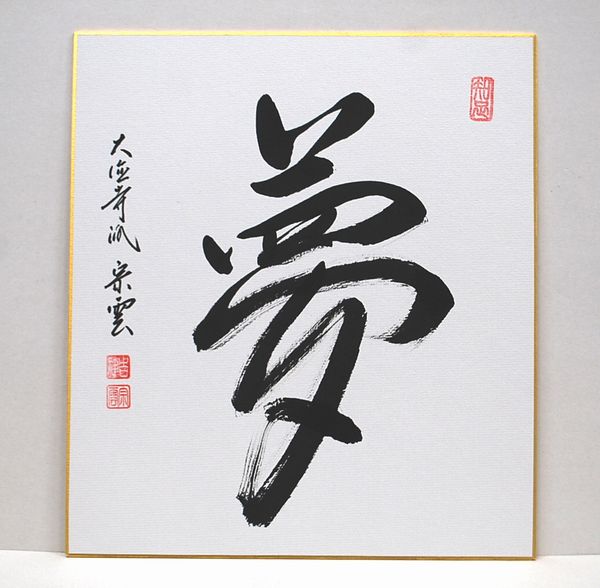 夢
大徳寺派 宗雲